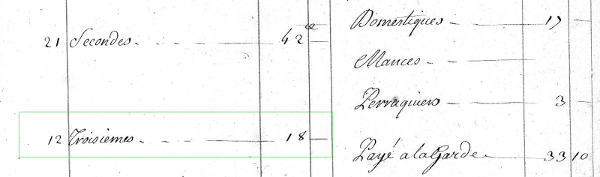 21 Secondes - 42 "
12 Troisiemes - 18 -
Domestiques - 17 -
Mances -
Perruquiers - 3 -
Payé a la Garde - 33 10